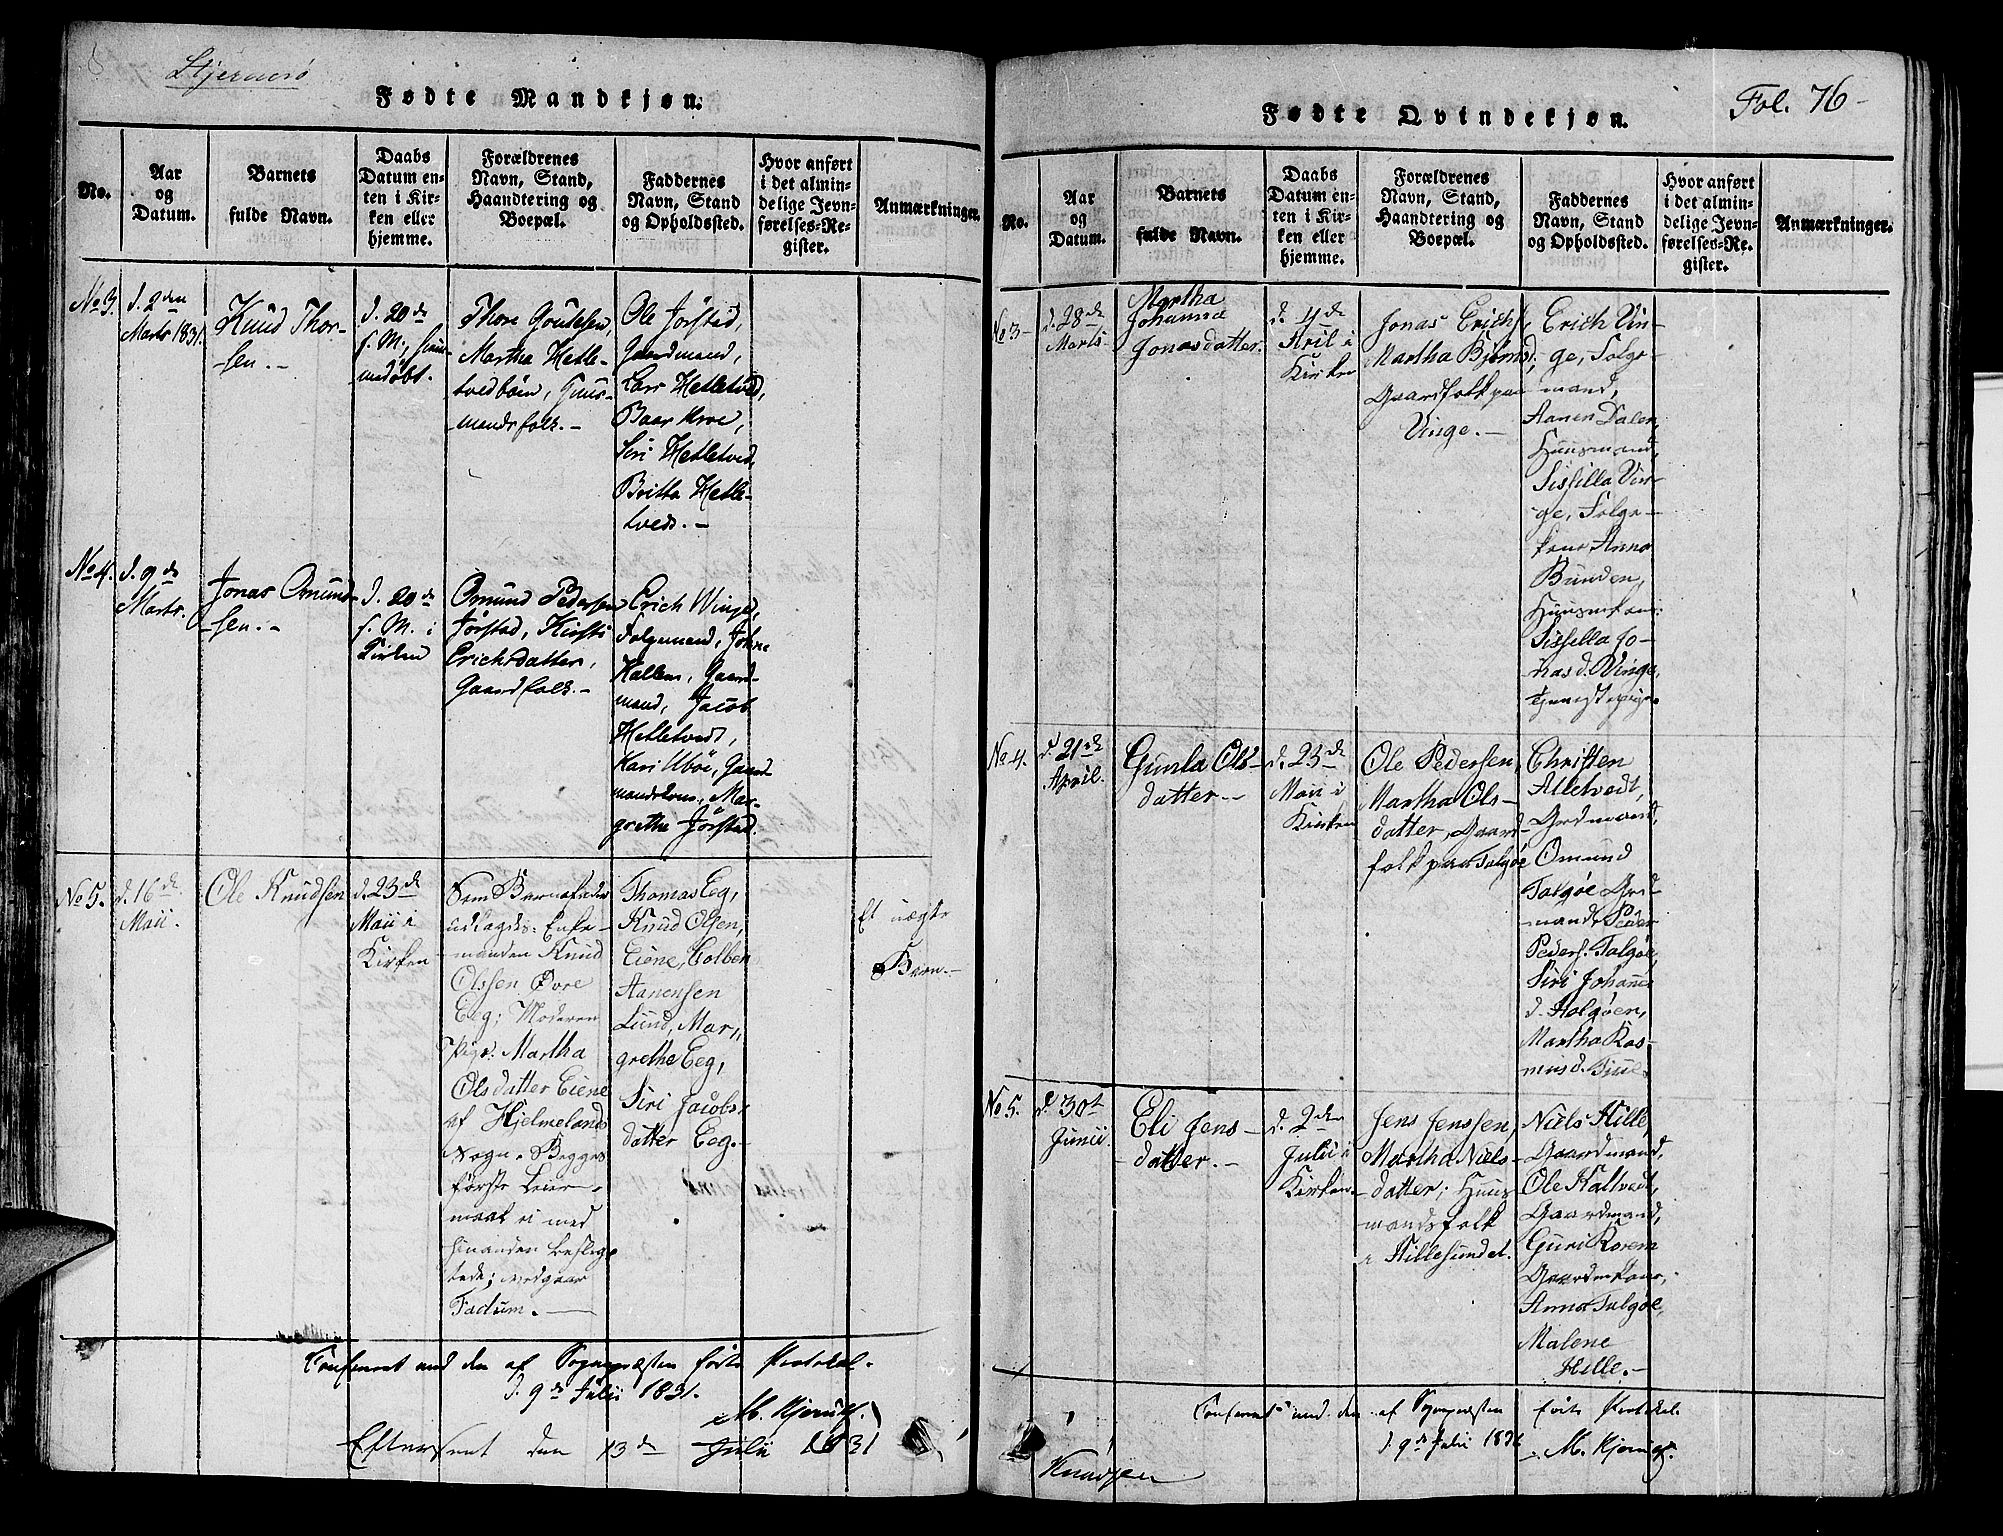 Stjernerö
Fødte Mandkjøn.
No.
Aar
og
Datum.
Barnets
fulde Navn.
Daabs
Datum en-
ten i Kir-
ken eller
hjemme.
Forældrenes
Navn, Stand,
Haandtering og
Boepæl.
Faddernes
Navn, Stand
og Opholdssted.
Hvor anført
i det almin-
delige Jevn-
førelses-Re-
gister.
Anmærkninger.
No 3.
d. 2den
Marts 1831.
Knud Thor-
sen.-
d. 20de
s. M.,
Thore Goutesen,
Martha Hetle-
tvedböen, Huus-
mandsfolk.-
Ole Jörstad,
Gaardmand,
Lars Hetletvid,
Baar Kroe,
Siri Hetletved,
Britta Hetle-
tved.-
No 4.
d. 9de
Marts.
Jonas Omund-
sen.-
d. 20de
s. M. i
Kirken
Omund Pedersen
Jörstad, Kirsti
Erichsdatter,
Gaardfolk.-
Erich Winge,
Folgemand, John
Hallem, Gaard-
mand, Jacob
Hetletvedt,
Kari Uböe, Gaard
mandskone, Mar-
grethe Jörstad.
No 5.
d. 16de
Maii.
Ole Knudsen
d. 23de
Maii i
Kirken
Som Barnefader
udlagdes: Enke-
manden Knud
Olssen Øvre
Eeg; Moderen
Pige Martha
Olsdatter Eiene
af Hjelmelands
Sogn. Begges
förste Leier-
maal ei med
hinanden beslæg-
tede; vedgaar
Factum.-
Thomas Eeg,
Knud Olsen,
Eiene, Colben
Aanensen
Lund, Mar-
grethe Eeg,
Siri Jacobs-
datter Eeg.-
Et uægte
Barn.-
Confereret med den af Sognepræsten förte Protokol.
d. 9de Julii 1831.
M. Kjerulf.
Eftersent den 13de Julii 1831
Fol. 76-
Fødte Qvindekjøn.
No.
Aar
og
Datum.
Barnets
fulde Navn.
Daabs
Datum en-
ten i Kir-
ken eller
hjemme.
Forældrenes
Navn, Stand,
Haandtering og
Boepæl.
Faddernes
Navn, Stand
og Opholdssted.
Hvor anført
i det almin-
delige Jevn-
førelses-Re-
gister.
Anmærkninger.
No 3-
d. 28de
Marts
Martha
Johanna
Jonasdatter.
d. 4de
April i
Kirken
Jonas Erichs.
Martha Björnsd.
Gaardfolk paa
Vinge.-
Erich Vin-
ge, Folge-
mand,
Aanen Dalen,
Huusmand,
Sissilla Vin-
ge, Folge-
kone Anna
Bunden,
Huusmkone
Sissella Jo-
nasd. Vinge,
Tjenestepige.
No 4.
d 21de
April.
Gunla Ols-
datter.-
d. 23de
Maii i
Kirken
Ole Pedersen,
Martha Ols-
datter, Gaard-
folk paa Talgöe
Christen
Alletvedt,
Grdmand,
Omund
Talgöe Grd
mand Peder
Peders. Talgöe,
Siri Johanne
d. Halgöen,
Martha Ras-
musd.
No 5.
d. 30t
Junii.
Eli Jens-
datter.-
d. 2den
Julii i
Kirken-
Jens Jenssen,
Martha Niels-
datter; Huus
mandsfolk
i Hillesundet.
Niels Hille,
Gaardmand,
Ole Haltvedt,
Gaardmand,
Guri Rorem
Gaardmkone,
Anna Talgöe,
Malene
Hille.-
Confereret med den af Sognepræsten förte Protokol.
d. 9de Julii 1831
M. Kjerulf.
Knudsen